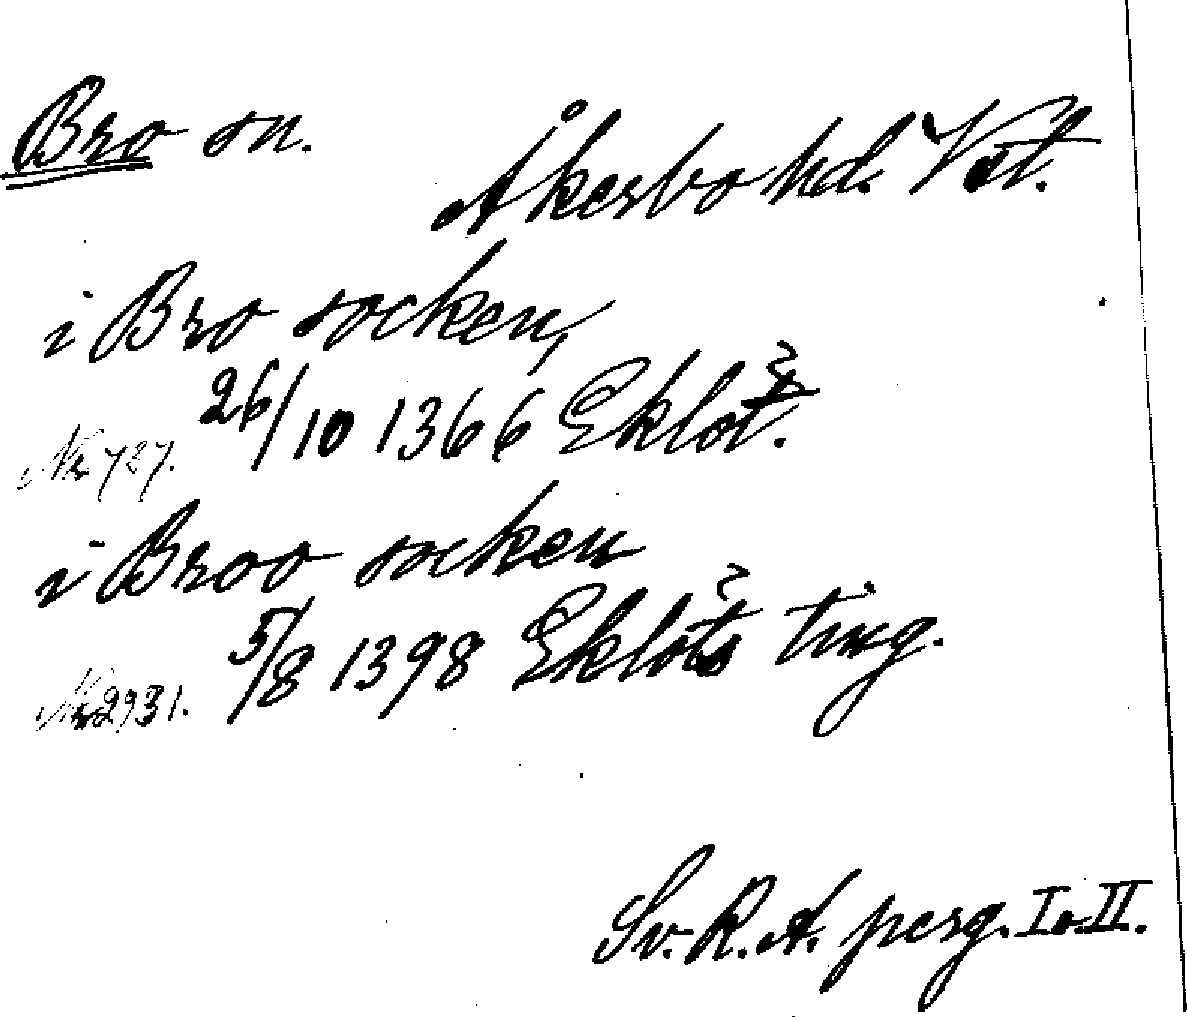 Bro sn.
Åkerbo hd. Vstl.
i Bro socken,
26/10 1366 Eklöt.
Nr 727.
i Broo socken
5/8 1398 Eklöts ting.
Nr 2931.
Sv. R. A. perg. I o. II.